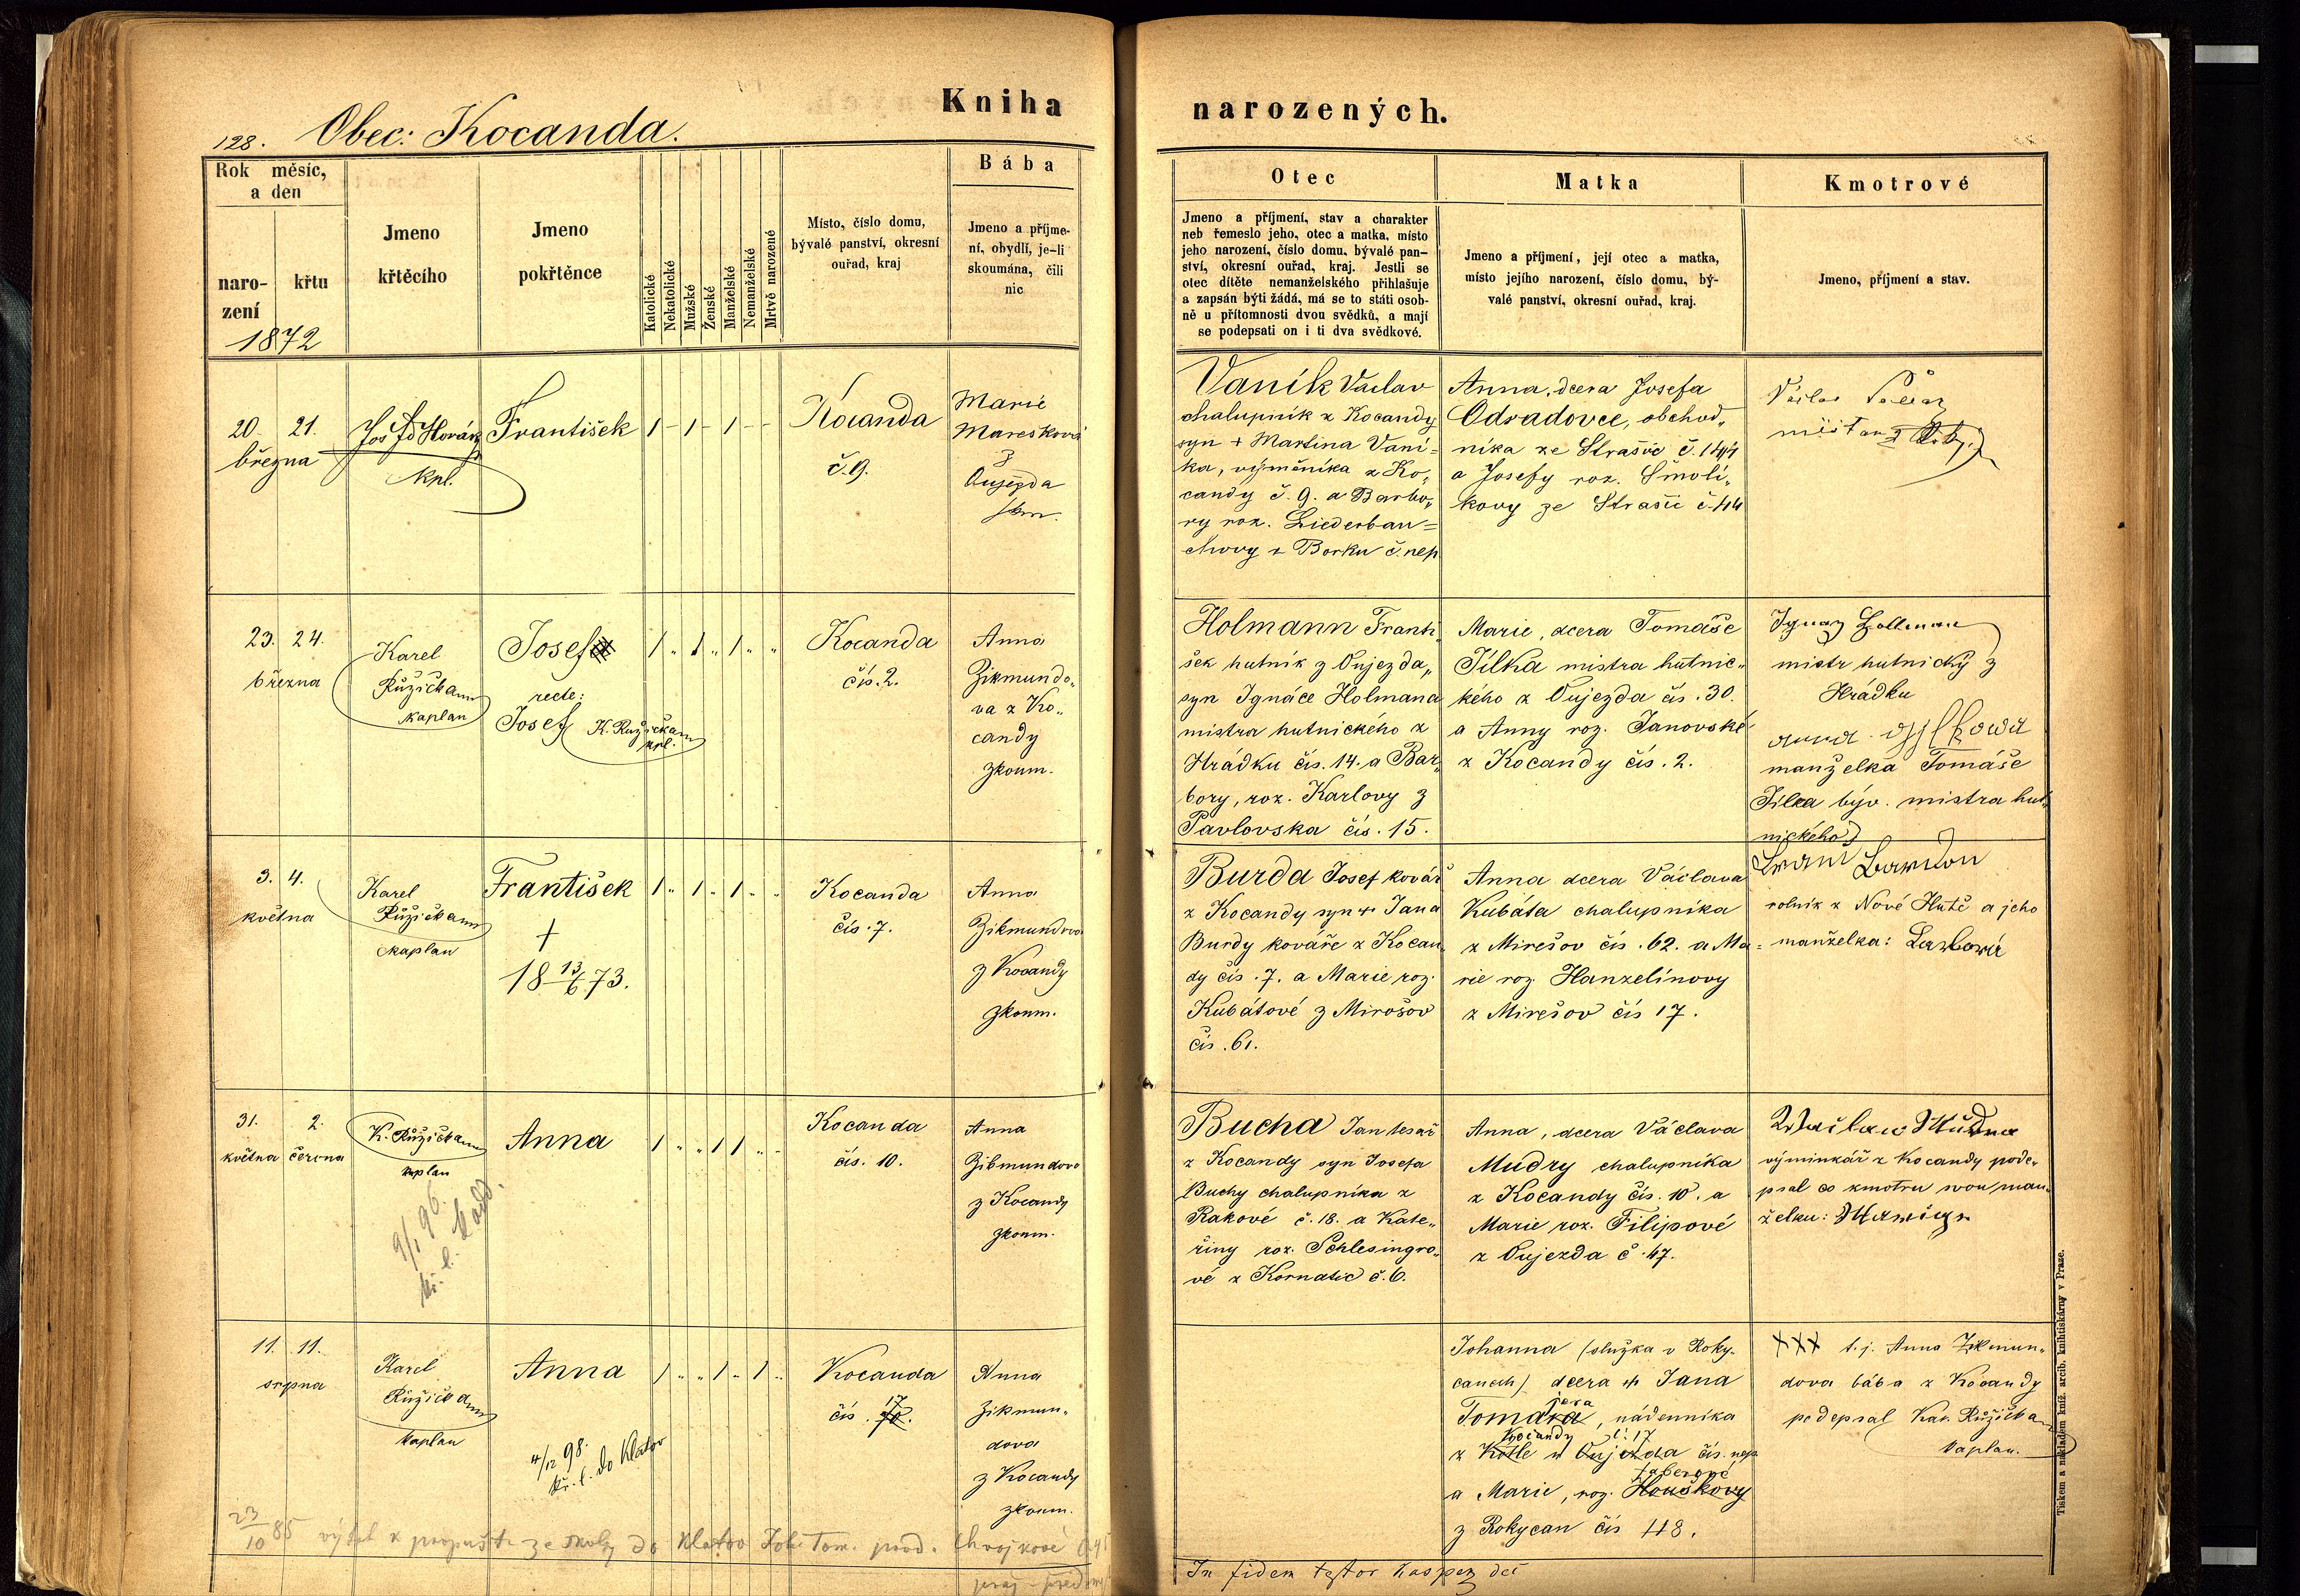 Kniha
narozených.
128. Obec: Kocanda.
Rok měsíc,
a den
naro-
zení
křtu
1872
Jmeno
křtěcího
Jmeno
pokřtěnce
Katolické
Nekatolické
Mužské
Ženské
Manželské
Nemanželské
Mrtvě narozené
Místo, číslo domu,
bývalé panství, okresní
ouřad, kraj
Bába
Jmeno a příjme-
ní, obydlí, je-li
skoumána, čili
nic
Otec
Jmeno a příjmení, stav a charakter
neb řemeslo jeho, otec a matka, místo
jeho narození, číslo domu, bývalé pan-
ství, okresní ouřad, kraj. Jestli se
otec dítěte nemanželského přihlašuje
a zapsán býti žádá, má se to státi osob-
ně u přítomnosti dvou svědků, a mají
se podepsati on i ti dva svědkové.
Matka
Jmeno a příjmení, její otec a matka,
místo jejího narození, číslo domu, bý-
valé panství, okresní ouřad, kraj.
Kmotrové
Jmeno, příjmení a stav.
20. 21.
března
Horák
kpl.
František
1 - 1 - 1 - -
Kocanda
č. 9.
Marie
Maresková
z
Oujezda
Vaník Václav
chalupník z Kocandy
syn + Martina Vaní=
ka, výměníka z Ko„
candy č. 9. a Barbo„
ry roz. Liederbau=
chovy z Borku č. nep
Anna, dcera Josefa
Odradovce, obchod„
níka ze Strašic č. 144
a Josefy roz. Smolí„
kovy ze Strašic č. 44
Václav
23. 24.
března
Karel
Růžička
kaplan
Josefa
recte:
Josef K. Růžička
kpl.
1 „ 1 „ 1 „ „
Kocanda
čís. 2.
Anna
Zikmundo„
va z Ko„
candy
zkoum.
Holmann Franti„
šek hutník z Oujezda„
syn Ignáce Holmana
mistra hutnického z
Hrádku čís. 14. a Bar„
bory, roz. Karlovy z
Pavlovska čís. 15.
Marie, dcera Tomáše
Jílka mistra hutnic„
kého z Oujezda čís. 30.
a Anny roz. Janovské
z Kocandy čís. 2.
Ignaz Hollmann
mistr hutnický z
Hrádku
manželka Tomáše
Jílka býv. mistra hut„
nického
3. 4.
května
Karel
Růžička
kaplan
František
+
18 13/6 73.
1 „ 1 „ 1 „ „
Kocanda
čís. 7.
Anna
Zikmundova
z Kocandy
zkoum.
Burda Josef kovář
z Kocandy syn + Jana
Burdy kováře z Kocan„
dy čís. 7. a Marie roz.
Kubátové z Mirošov
čís. 61.
Anna dcera Václava
Kubáta chalupníka
z Mirešov čís. 62. a Ma=
rie roz. Hanzelínovy
z Mirešov čís 17.
rolník z Nové Hutě a jeho
manželka:
31. 2.
května června
K. Růžička
kaplan
9/1 96.
Anna
1 „ „ 1 1 „ „
Kocanda
čís. 10.
Anna
Zikmundova
z Kocandy
zkoum.
Bucha Jan tesař
z Kocandy syn Josefa
Buchy chalupníka z
Rakové č. 18. a Kate„
řiny roz. Schlesingro„
vé z Kornatic č. 6.
Anna, dcera Václava
Mudry chalupníka
z Kocandy čís. 10. a
Marie roz. Filipové
z Oujezda č. 47.
Waclaw Mudra
výminkář z Kocandy pode„
psal co kmotru svou man„
želku:
11. 11.
srpna
Karel
Růžička
kaplan
Anna
4/12 98.
kř. l. do Klatov
1 „ „ 1 „ 1 „
Kocanda
čís. 17
Anna
Zikmun„
dova
z Kocandy
zkoum.
Johanna (služka v Roky-
canech) dcera + Jana
Tomára, nádenníka
Kocandy č. 17
z Kotle u Oujezda čís. nep
a Marie, roz. Houškovy
z Rokycan čís 118.
XXX t. j. Anna Zikmun„
dova bába z Kocandy
podepsal Kar. Růžička
kaplan.
23/10 85 ze školy do Klatov
In fidem testor
Tiskem a nákladem kníž. arcib. knihtiskárny v Praze.